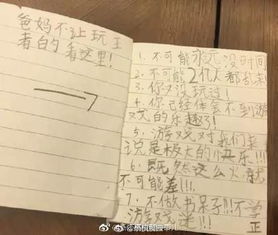 爸妈不让玩王
者的看这里!
1. 不可能永远没时间
2. 不可能2亿人都乱来
3. 你又没玩过!
4. 你已经体会不到游
戏的乐趣了!
5. 游戏对我们来
说是极大的快乐!!!
6. 既然这么火就
不可能差!!!
7. 不做书呆子!!!不学
游戏迷!!!
正